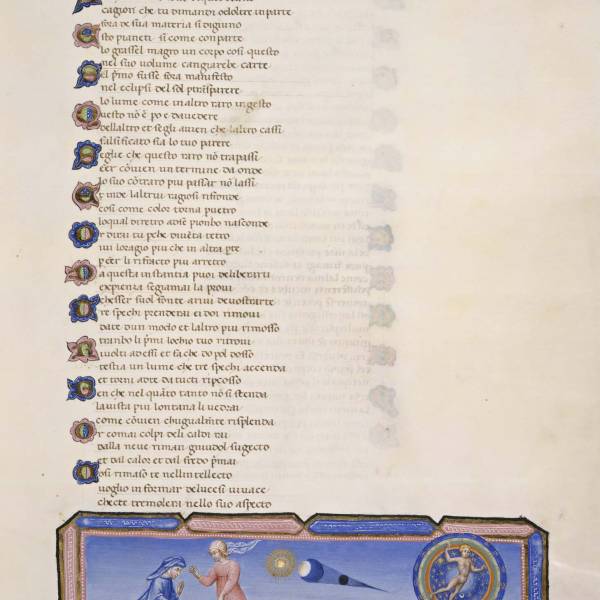 cagion che tu dimandi od oltre in parte
fora de sua materia si digiuno
sto pianeti si come conparte
lo grassel magro un corpo cosi questo
nel suo volume cangiarebe carte
el pmo fusse fora manifesto
nel eclipsi del sol
lo lume come in altro raro ingesto
uesto nō e po e da vedere
dellaltro et segli avien che laltro cassi
falsificato fia lo tuo parere
eglie che questo raro nō trapassi
eer cōvien un termine da onde
lo suo cōtraro piu passar nō lassi
inde laltrui ragiosi rifonde
cosi come color torna
loqual diretro adse pionbo nasconde
r dirai tu pche divēta tetro
ivi loragio piu che in altra pte
p eēr li rifracto piu arretro
a questa instantia puor deliberarti
expienza segiamai la provi
chesser suol fonte arivi devostrarte
re spechi prenderai e i doi rimovi
date dun modo et laltro piu rimosso
trambo li pmi lochio tuo ritrovi
ivolti adessi et fa che do pol dosso
testia un lume che tre spechi accenda
et torni adte da tutti ripcosso
en che nel quāto tanto nō si stenda
la vista piu lontana li vedrai
come cōvien chigualmīte risplenda
r comai colpi deli caldi rai
dalla neve riman gnudol sugecto
et dal calor et dal fredo pmai
osi rimaso te nellintellecto
voglio informar de luce si vivace
che cte tremolera nello suo aspecto